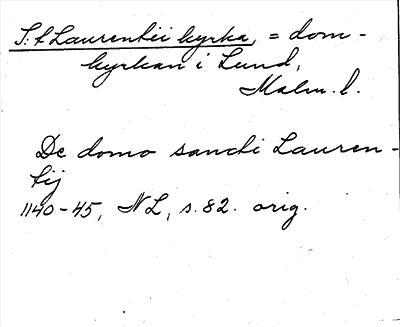 S:t Laurentii kyrka, = dom-
kyrkan i Lund,
Malm. l.
De domo sancti Lauren-
tij
1140-45, NL, s. 82. orig.